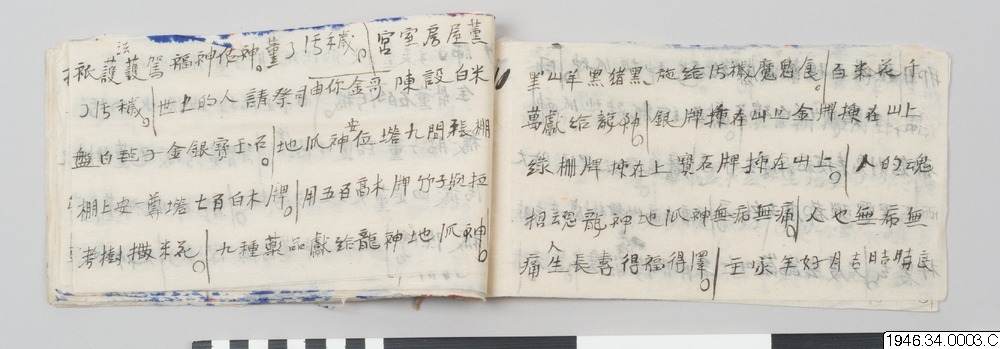 衹護法護駕福神佑神。薰了污穢。宮室房屋薰
了污穢。世上的人請祭司由你金哥陳設白米
盤白毡子金銀寶玉石。地爪神安位塔九間彩棚
棚上安一尊塔七百白木牌。用五百高木牌竹子與拉
考樹撒米花。九種藥品獻給龍神地爪神。
黑山羊黑猪黑施給污穢魔鬼食。百米花千
萬獻給龍神。銀牌揀在山上金牌揀在山上
綠柵牌揀在上寶石牌揀在山上。人的魂
招云恐龍神地爪神無病無痛人也無病無
痛人生長壽得福得澤。主家年好月吉時辰
1946.34.0003.C